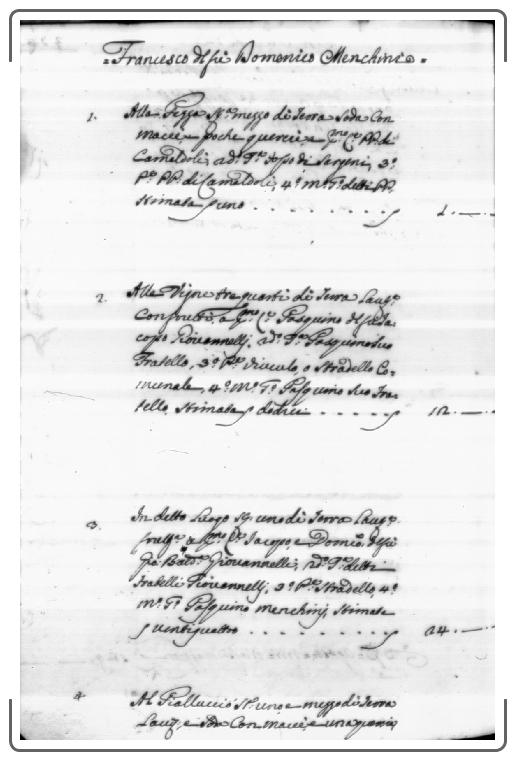 Francesco del fù Domenico Menchini
1. Alla Pezza St.º mezzo di Terra Soda Con
macie e poche querci a p.mo C.º PP. di
Camaldoli, 2.do T.ª Jopo di Sereni, 3.º
P.e PP. di Camaldoli, 4.º M.º T.ª detti PP.
Stimata s uno . . . . . . . . s 1.—.—.
2. Alle Vigne tre quarti di Terra Lau.ª
Con frutti, a p.mo C.º Pasquino del fù Ja-
copo Giovannelli, 2.do T.ª Pasquino suo
Fratello, 3.º P.e Viuculo, o Stradello Co-
munale, 4.º M.º T.ª Pasquino suo Fra-
tello, Stimata s dodici . . . . . s 12.—.—
3. In detto Luogo St.º uno di Terra Lau.ª
frutt.ª a p.mo C.º Jacopo, e Dom.co del fù
Gio Batt.ª Giovannelli, 2.do T.ª detti
fratelli Giovannelli, 3.º P.e Stradello, 4.º
M.º T.ª Pasquino Menchini, Stimata
s Ventiquattro . . . . . . . . s 24.—.—
4. Al Pialluccio St.º uno, e mezzo di Terra
Lau.ª, e soda Con macie, e una